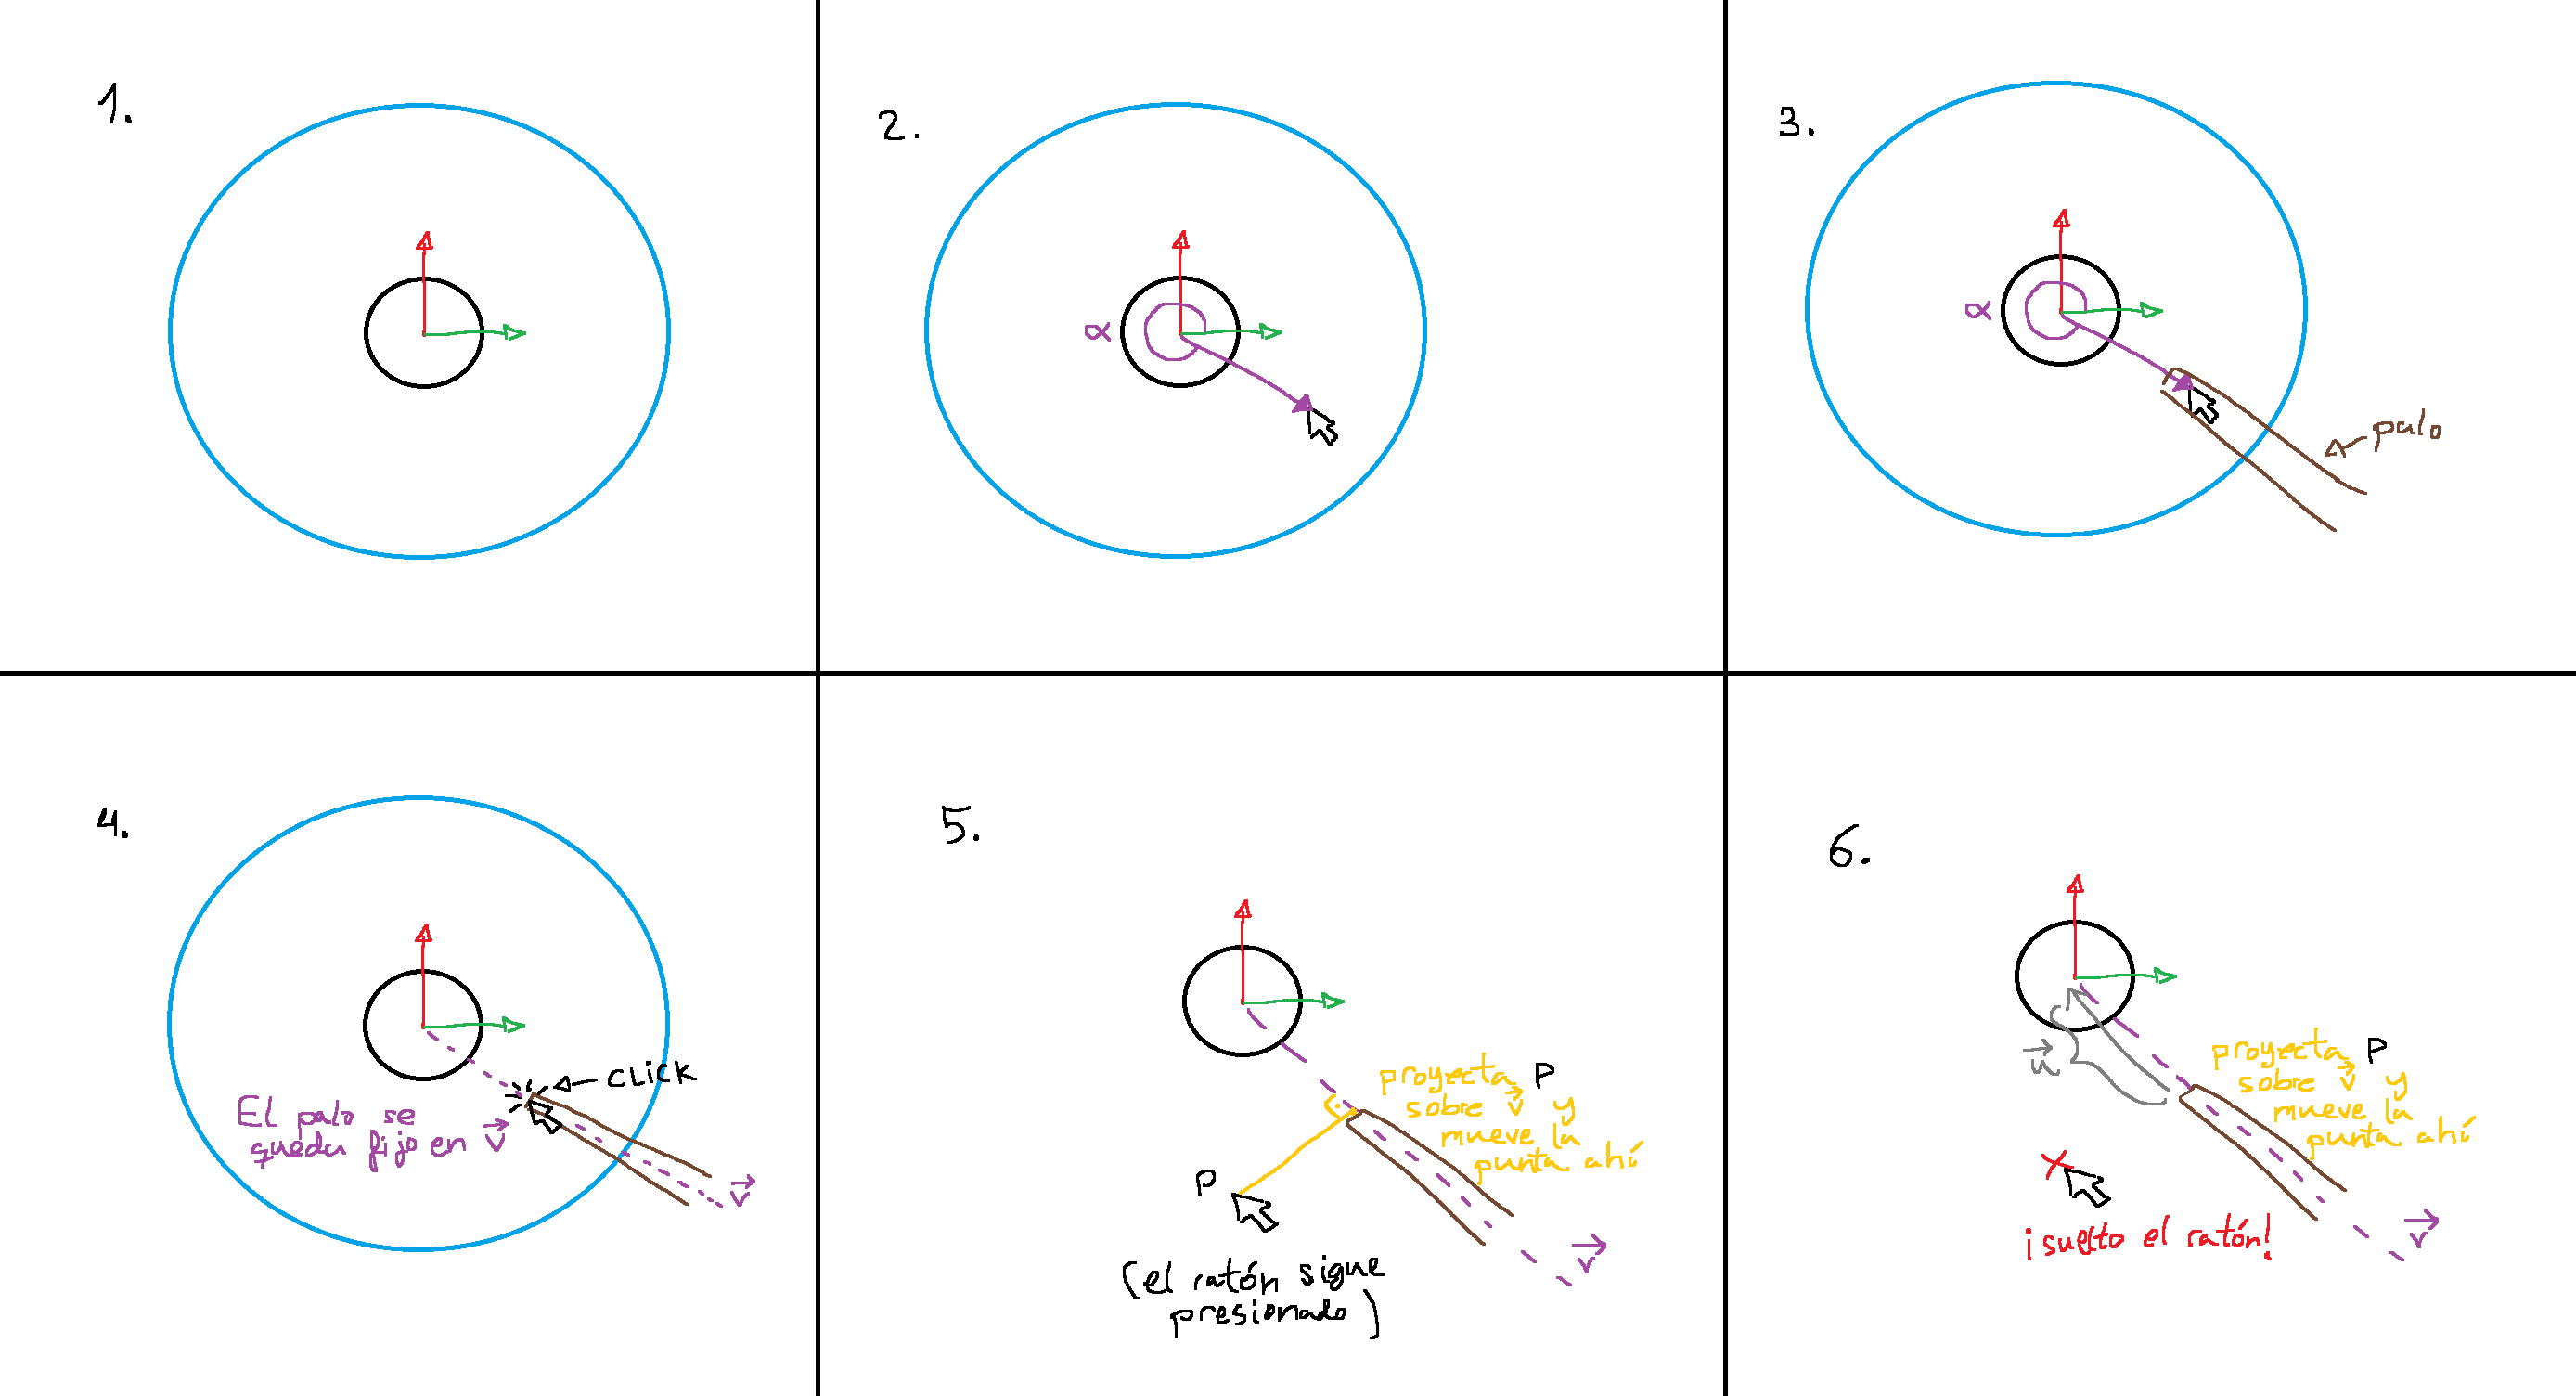 1.
2.
α
3.
α
palo
4.
CLICK
El palo se
queda fijo en v
v
5.
proyecta P
sobre v y
mueve la
punta ahí
P
v
(el ratón sigue
presionado)
6.
u
proyecta P
sobre v y
mueve la
punta ahí
v
¡suelto el ratón!